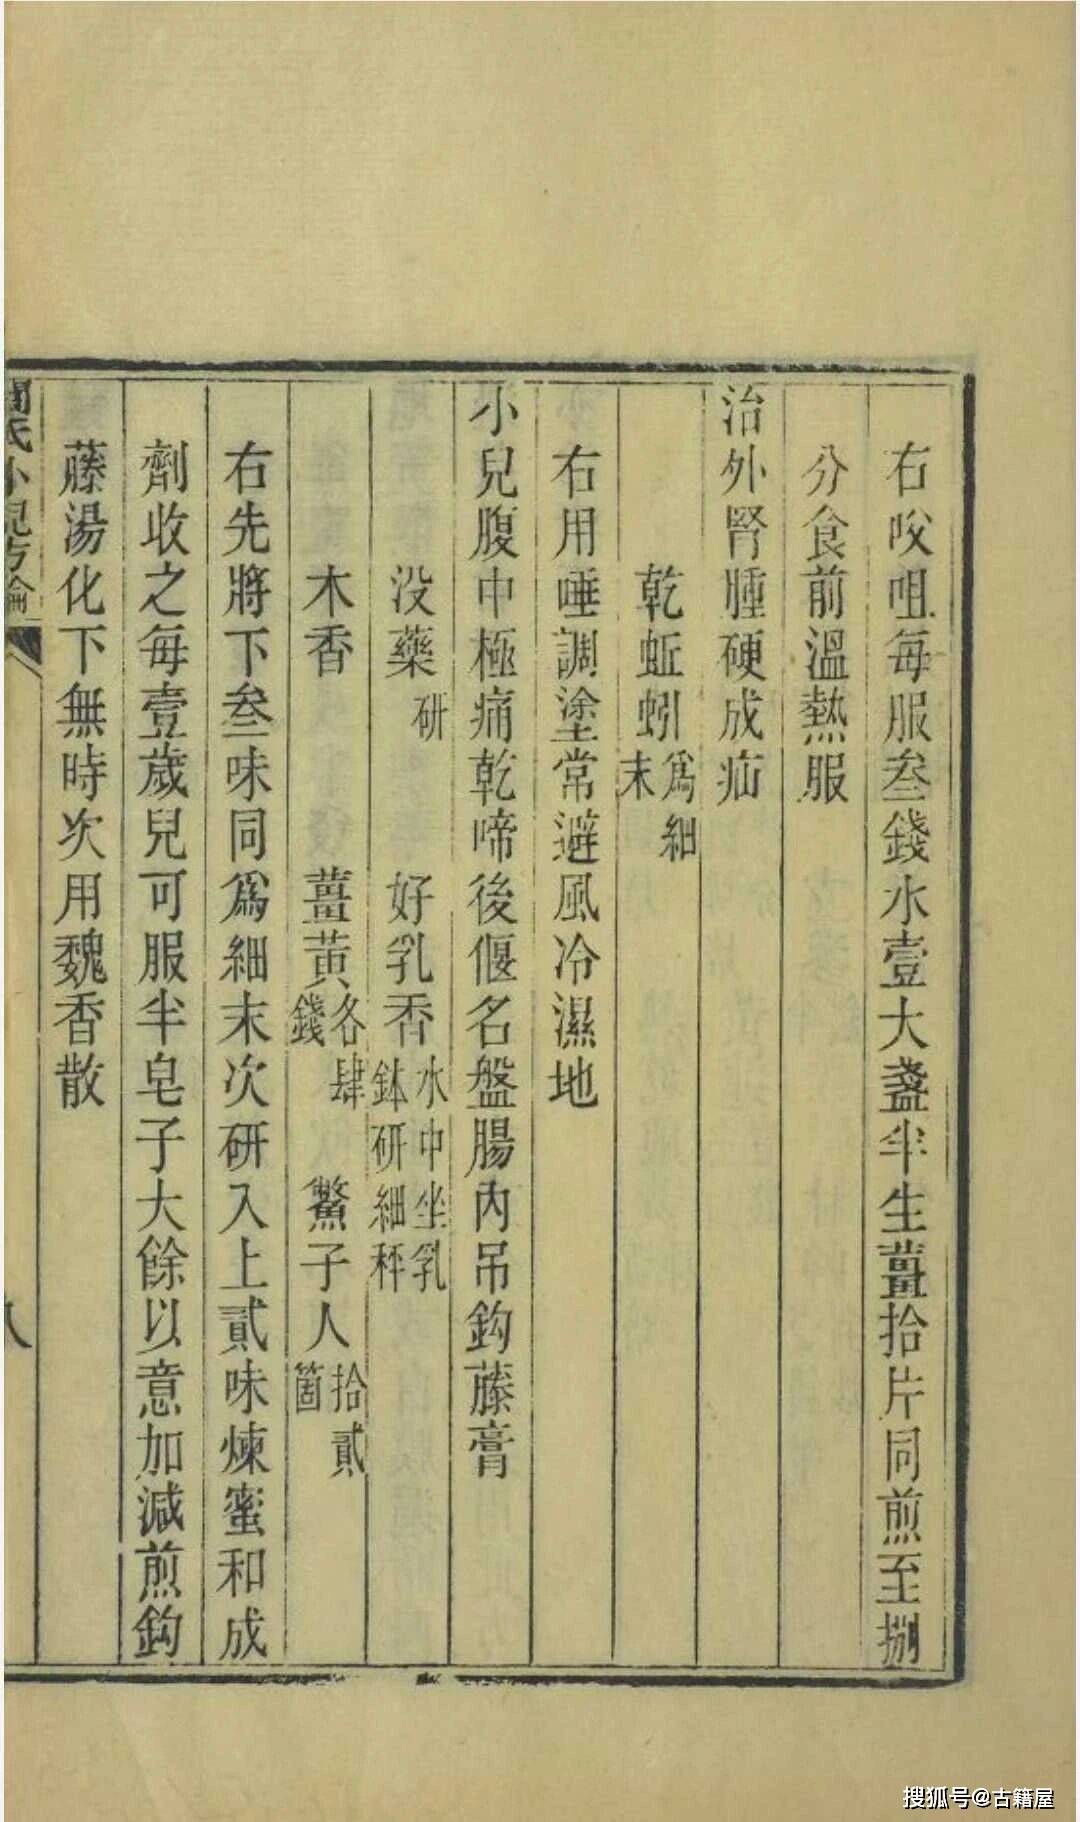 右㕮咀每服叁錢水壹大盞半生薑拾片同煎至捌
分食前溫熱服
治外腎腫硬成疝
乾蚯蚓爲細末
右用唾調塗常避風冷濕地
小兒腹中極痛乾啼後偃名盤腸內吊鈎藤膏
没藥研 好乳香水中坐乳鉢研細秤
木香 薑黃各肆錢 鱉子人拾貳箇
右先將下叁味同爲細末次研入上貳味煉蜜和成
劑收之每壹歲兒可服半皂子大餘以意加減煎鈎
藤湯化下無時次用魏香散
閻氏小兒方論
八
搜狐号@古籍屋